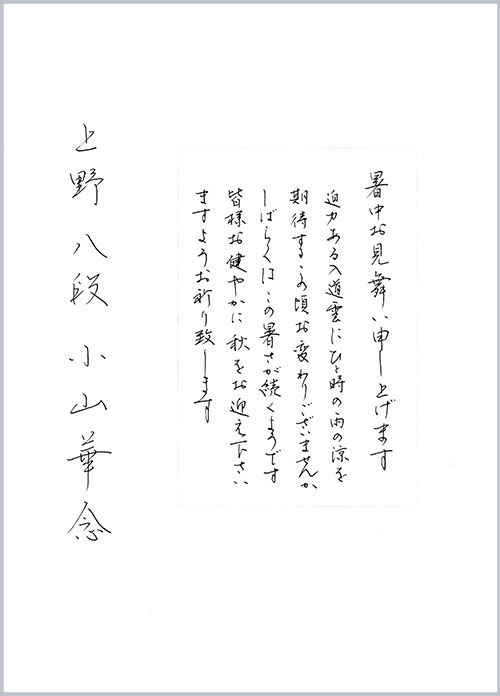 暑中お見舞い申し上げます
迫力ある入道雲にひと時の雨の涼を
期待するこの頃お変わりございませんか
しばらくはこの暑さが続くようです
皆様お健やかに秋をお迎え下さい
ますようお祈り致します
上野 八段 小山華念